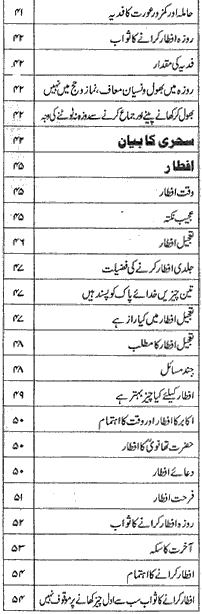 حاملہ اور کمزور عورت کا فدیہ ۴۱
روزہ افطار کرانے کا ثواب ۴۲
فدیہ کی مقدار ۴۲
روزہ میں بھول و نسیان معاف، نماز و حج میں نہیں ۴۲
بھول کر کھانے پینے اور جماع کرنے سے روزہ نہ ٹوٹنے کی وجہ ۴۲
سحری کا بیان ۴۳
افطار ۴۵
وقت افطار ۴۵
عجیب نکتہ ۴۵
تعجیل افطار ۴۶
جلدی افطار کرنے کی فضیلت ۴۷
تین چیزیں خدائے پاک کو پسند ہیں ۴۷
تعجیل افطار میں کیا راز ہے ۴۷
تعجیل افطار کا مطلب ۴۸
چند مسائل ۴۸
افطار کیلئے کیا چیز بہتر ہے ۴۹
اکابر کا افطار اور وقت کا اہتمام ۵۰
حضرت تھانویؒ کا افطار ۵۰
دعائے افطار ۵۰
فرحت افطار ۵۱
روزہ افطار کرانے کا ثواب ۵۲
آخرت کا سکہ ۵۳
افطار کرانے کا اہتمام ۵۴
افطار کرانے کا ثواب سب سے اول چیز کھانے پر موقوف نہیں ۵۴